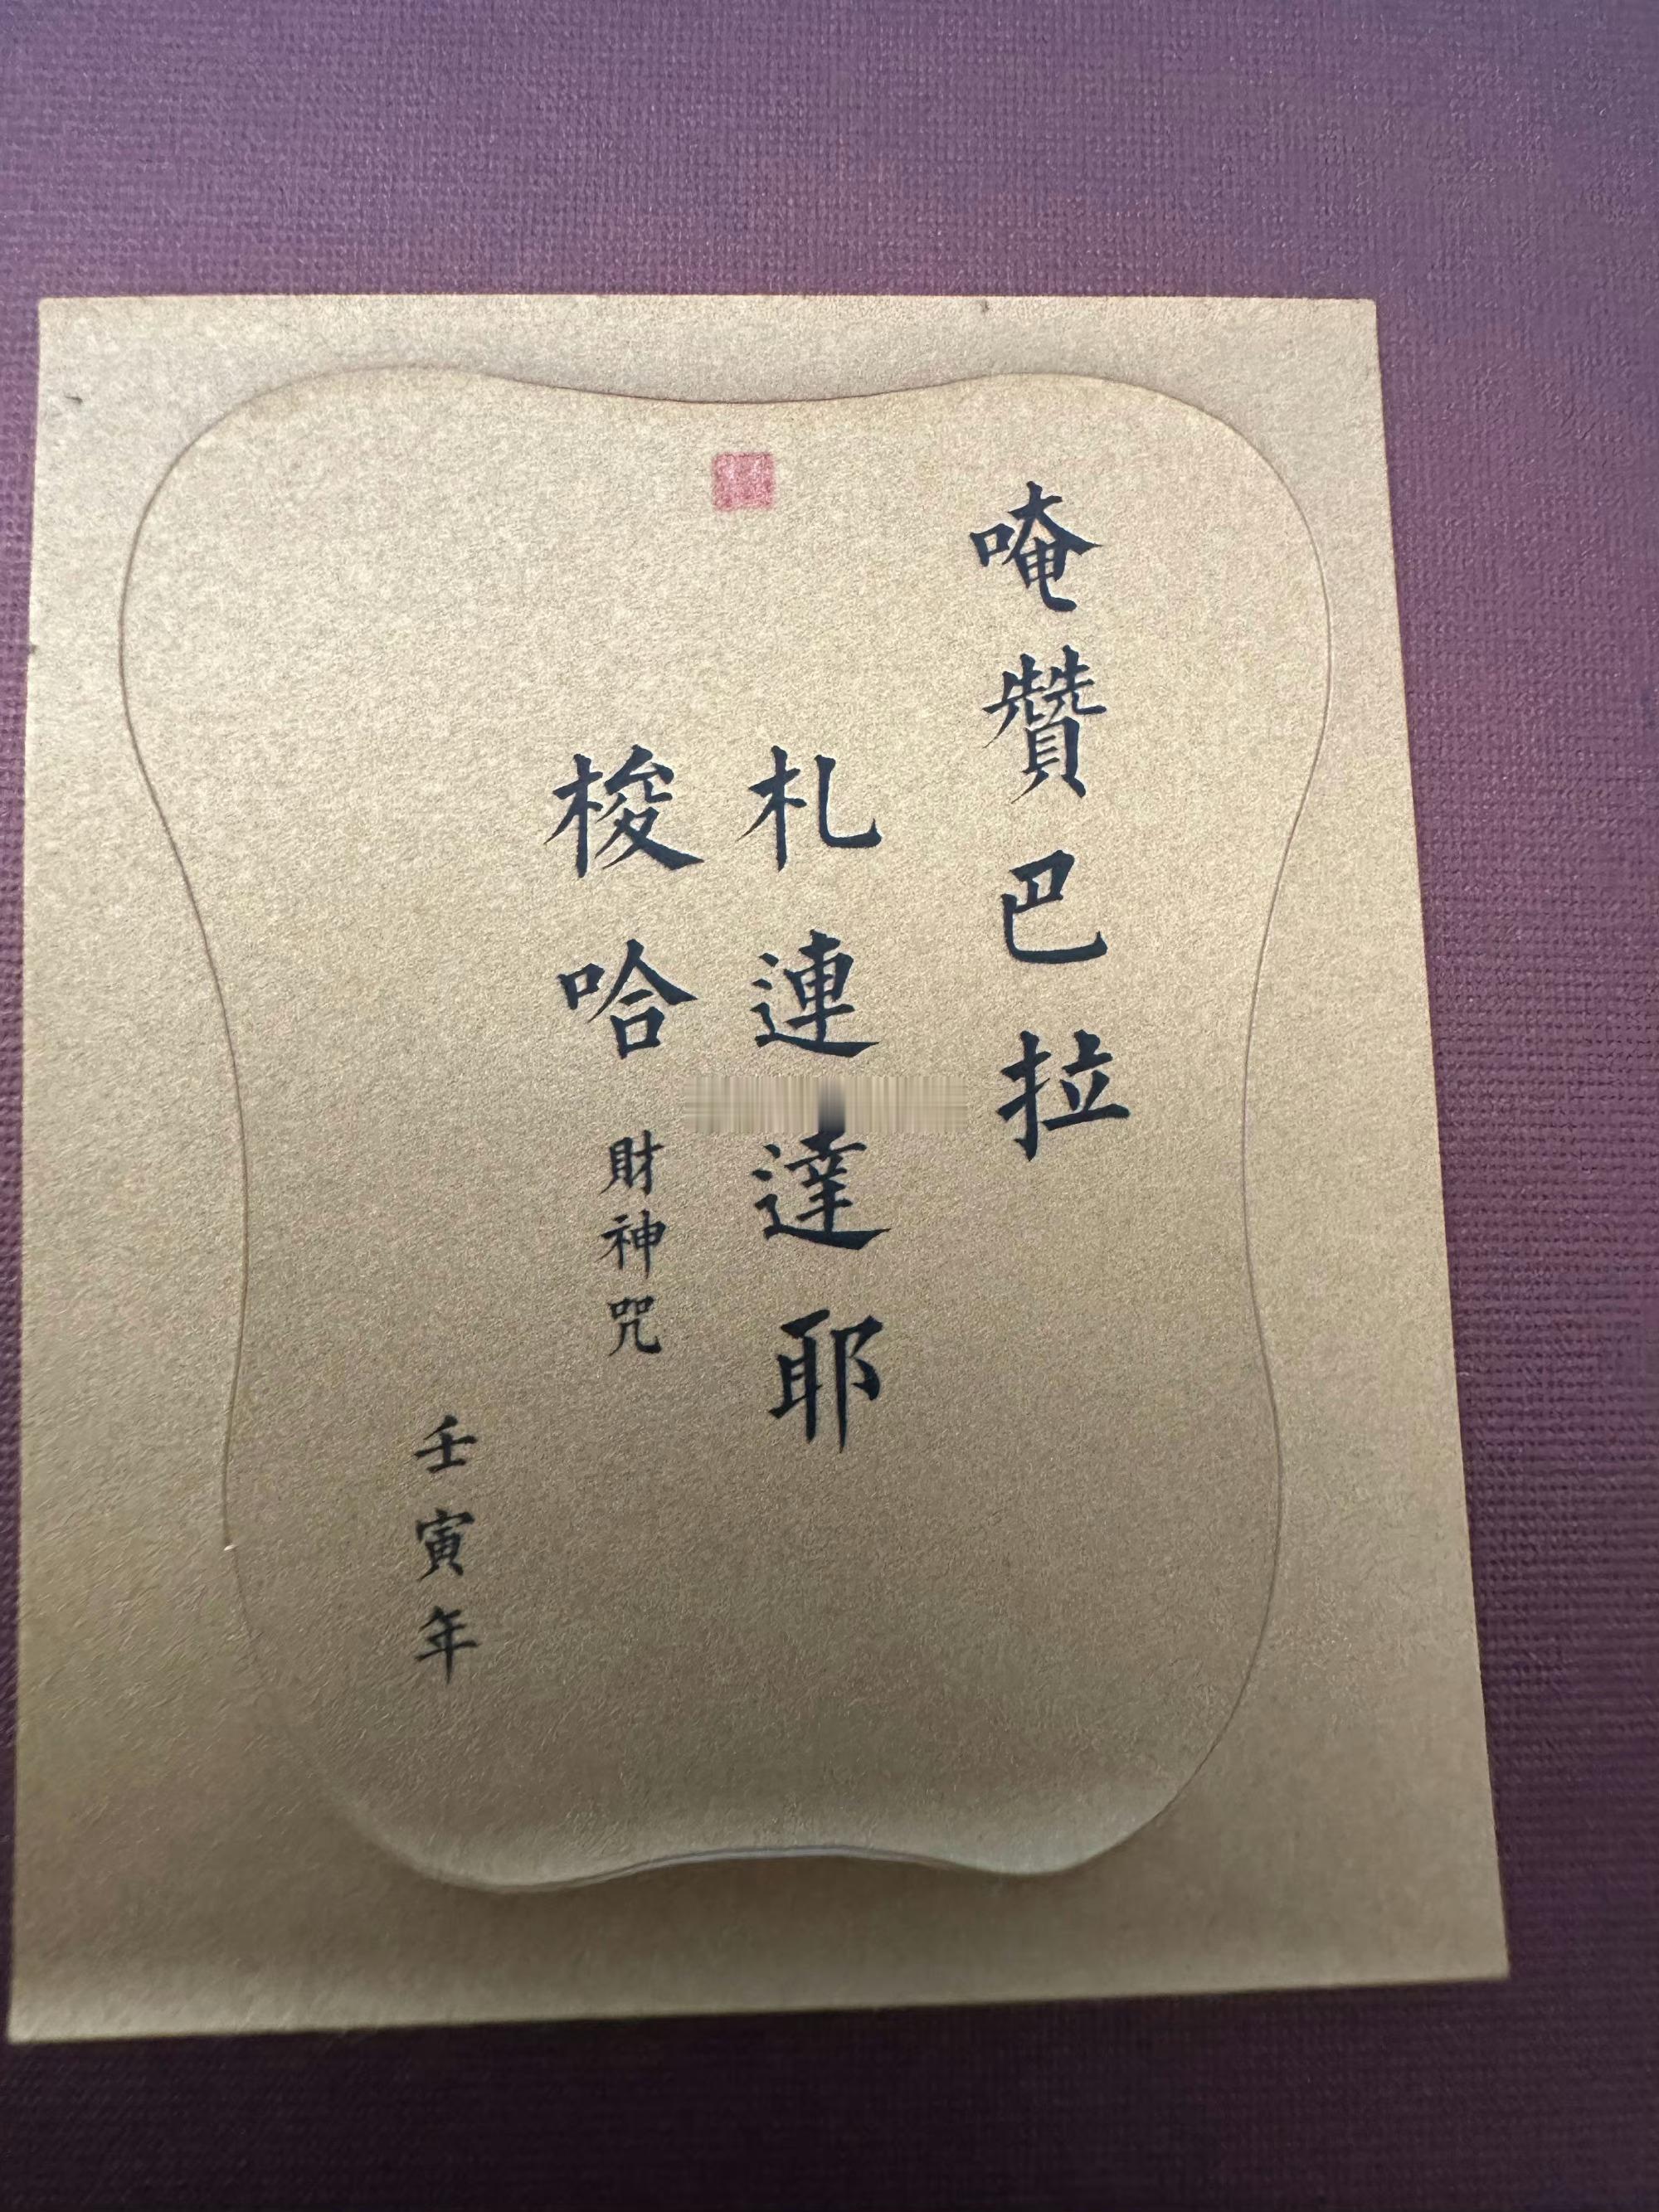 唵贊巴拉
札連達耶
梭哈 財神咒
壬寅年